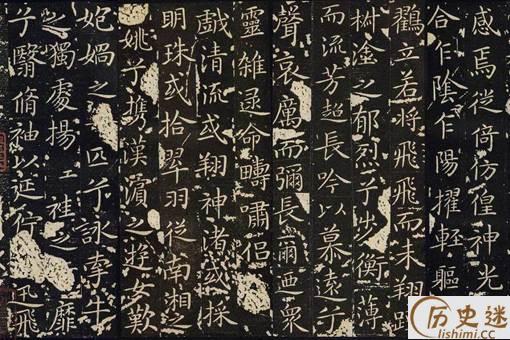 感焉徙倚仿徨神光
合乍陰乍陽擢輕軀
鸖立若將飛飛而未翔踐
塗之郁烈兮步衡薄
而流芳超長吟以慕遠兮
聲哀厲而彌長爾迺衆
靈雜遝命疇嘯侶
戲清流或翔神渚或採
明珠或拾翠羽從南湘之
姚兮攜漢濱之遊女歎
媧之匹兮詠牽牛
之獨處揚袿之靡
兮翳脩袖以延佇迅飛
历史迷
lishimi.cc